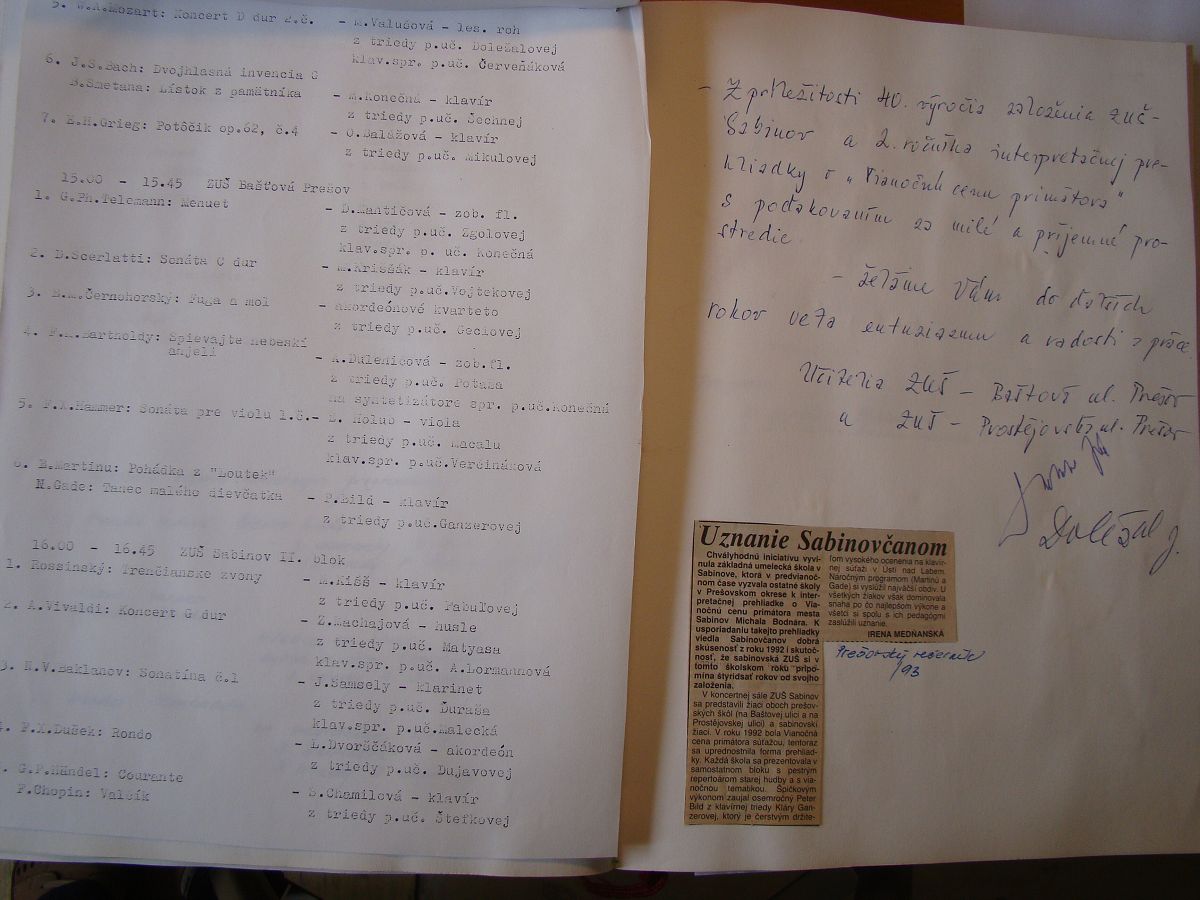 5. W.A.Mozart: Koncert D dur 2.č. - M.Valušová - les. roh
z triedy p.uč. Doležalovej
klav.spr. p.uč. Červeňáková
6. J.S.Bach: Dvojhlasná invencia C
B.Smetana: Lístok z pamätníka - M.Konečná - klavír
z triedy p.uč. Čechnej
7. E.H.Grieg: Potôčik op.62, č.4 - O.Balážová - klavír
z triedy p.uč. Mikulovej
15.00 - 15.45 ZUŠ Bašťová Prešov
1. G.Ph.Telemann: Menuet - D.Mantičová - zob. fl.
z triedy p.uč. Zgolovej
klav.spr. p. uč. Konečná
2. D.Scerlatti: Sonáta C dur - M.Kriššák - klavír
z triedy p.uč.Vojtekovej
3. B.M.Černohorský: Fuga a mol - akordeónové kvarteto
z triedy p.uč. Geciovej
4. F.M.Bartholdy: Spievajte nebeskí
anjeli - A.Dulenicová - zob.fl.
z triedy p.uč. Potaša
na syntetizátore spr. p.uč.Konečná
5. F.X.Hammer: Sonáta pre violu 1.č.- B. Holub - viola
z triedy p.uč. Macalu
klav.spr. p.uč.Verčináková
6. B.Martinu: Pohádka z "Loutek"
N.Gade: Tanec malého dievčatka - P.Bild - klavír
z triedy p.uč.Ganzerovej
16.00 - 16.45 ZUŠ Sabinov II. blok
1. Rossinský: Trenčianske zvony - M.Kišš - klavír
z triedy p.uč. Fabuľovej
2. A.Vivaldi: Koncert G dur - Z.Machajová - husle
z triedy p.uč. Matyasa
klav.spr. p.uč. A.Lormannová
3. N.V.Baklanov: Sonatína č.1 - J.Samsely - klarinet
z triedy p.uč. Ďuraša
klav.spr. p.uč.Malecká
4. F.X.Dušek: Rondo - L.Dvorščáková - akordeón
z triedy p.uč. Dujavovej
. G.F.Händel: Courante
F.Chopin: Valčík - S.Chamilová - klavír
z triedy p.uč. Štefkovej
- Z príležitosti 40. výročia založenia ZUŠ-
Sabinov a 2. ročníka interpretačnej pre-
hliadky o "Vianočnú cenu primátora"
s poďakovaním za milé a príjemné pro-
stredie.
- želáme Vám do ďalších
rokov veľa entuziazmu a radosti z práce.
Učitelia ZUŠ - Baštová ul. Prešov
a ZUŠ - Prostějovská ul. Prešov
Doležal J.
Uznanie Sabinovčanom
Chvályhodnú iniciatívu vyvi-
nula základná umelecká škola v
Sabinove, ktorá v predvianoč-
nom čase vyzvala ostatné školy
v Prešovskom okrese k inter-
pretačnej prehliadke o Via-
nočnú cenu primátora mesta
Sabinov Michala Bodnára. K
usporiadaniu takejto prehliadky
viedla Sabinovčanov dobrá
skúsenosť z roku 1992 i skutoč-
nosť, že sabinovská ZUŠ si v
tomto školskom roku pripo-
mína štyridsať rokov od svojho
založenia.
V koncertnej sále ZUŠ Sabinov
sa predstavili žiaci oboch prešov-
ských škôl (na Baštovej ulici a na
Prostějovskej ulici) a sabinovskí
žiaci. V roku 1992 bola Vianočná
cena primátora súťažou, tentoraz
sa uprednostnila forma prehliad-
ky. Každá škola sa prezentovala v
samostatnom bloku s pestrým
repertoárom starej hudby a s via-
nočnou tematikou. Špičkovým
výkonom zaujal osemročný Peter
Bild z klavírnej triedy Kláry Gan-
zerovej, ktorý je čerstvým držite-
ľom vysokého ocenenia na klavír-
nej súťaži v Ústí nad Labem.
Náročným programom (Martinů a
Gade) si vyslúžil najväčší obdiv. U
všetkých žiakov však dominovala
snaha po čo najlepšom výkone a
všetci si spolu s ich pedagógmi
zaslúžili uznanie.
IRENA MEDŇANSKÁ
Prešovský večerník
/93